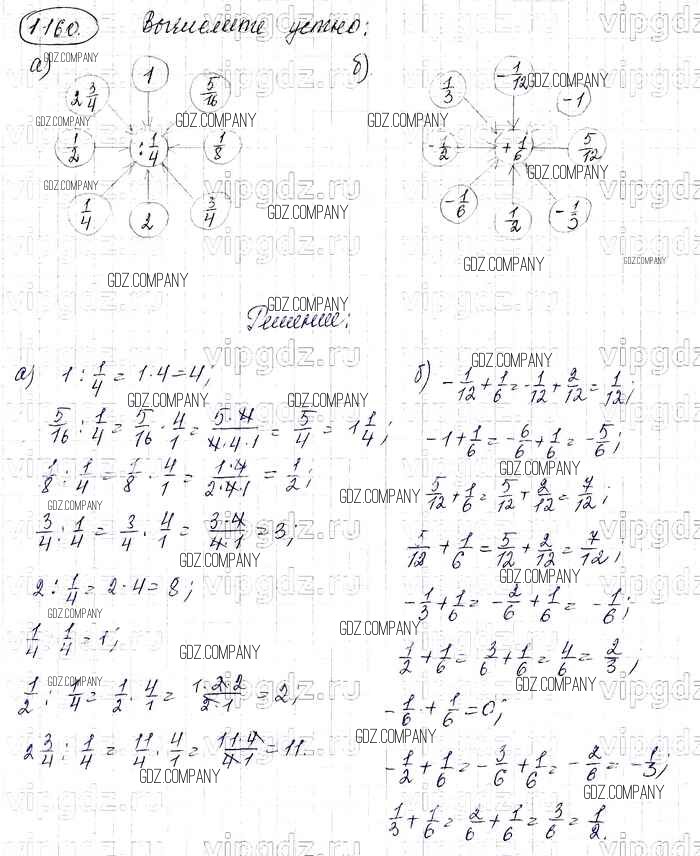 1160. Вычислите устно:
а) б)
2 3/4 1 5/16 1/2 : 1/4 1/8 1/4 2 3/4
1/3 -1/12 -1 -1/2 + 1/6 5/12 -1/6 1/2 -1/3
Решение:
а) 1 : 1/4 = 1 · 4 = 4;
5/16 : 1/4 = 5/16 · 4/1 = 5·4/4·4·1 = 5/4 = 1 1/4;
1/8 : 1/4 = 1/8 · 4/1 = 1·4/2·4·1 = 1/2;
3/4 : 1/4 = 3/4 · 4/1 = 3·4/4·1 = 3;
2 : 1/4 = 2 · 4 = 8;
1/4 : 1/4 = 1;
1/2 : 1/4 = 1/2 · 4/1 = 1·2·2/2·1 = 2;
2 3/4 : 1/4 = 11/4 · 4/1 = 11·4/4·1 = 11.
б) -1/12 + 1/6 = -1/12 + 2/12 = 1/12;
-1 + 1/6 = -6/6 + 1/6 = -5/6;
5/12 + 1/6 = 5/12 + 2/12 = 7/12;
5/12 + 1/6 = 5/12 + 2/12 = 7/12;
-1/3 + 1/6 = -2/6 + 1/6 = -1/6;
1/2 + 1/6 = 3/6 + 1/6 = 4/6 = 2/3;
-1/6 + 1/6 = 0;
-1/2 + 1/6 = -3/6 + 1/6 = -2/6 = -1/3;
1/3 + 1/6 = 2/6 + 1/6 = 3/6 = 1/2.
GDZ.COMPANY
vipgdz.ru